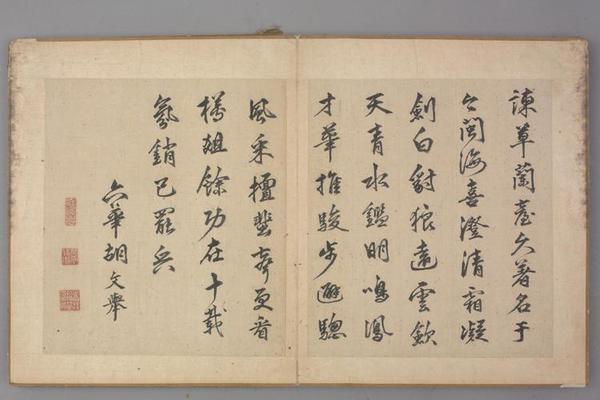 諫草蘭臺久著名于
今閩海喜澄清霜凝
劍白豺狼遠雲斂
天青水鑑明鳴鳳
才華推駿步避驄
風采擅蜚聲更看
樽俎餘功在十載
氛銷已罷兵
六華胡文舉